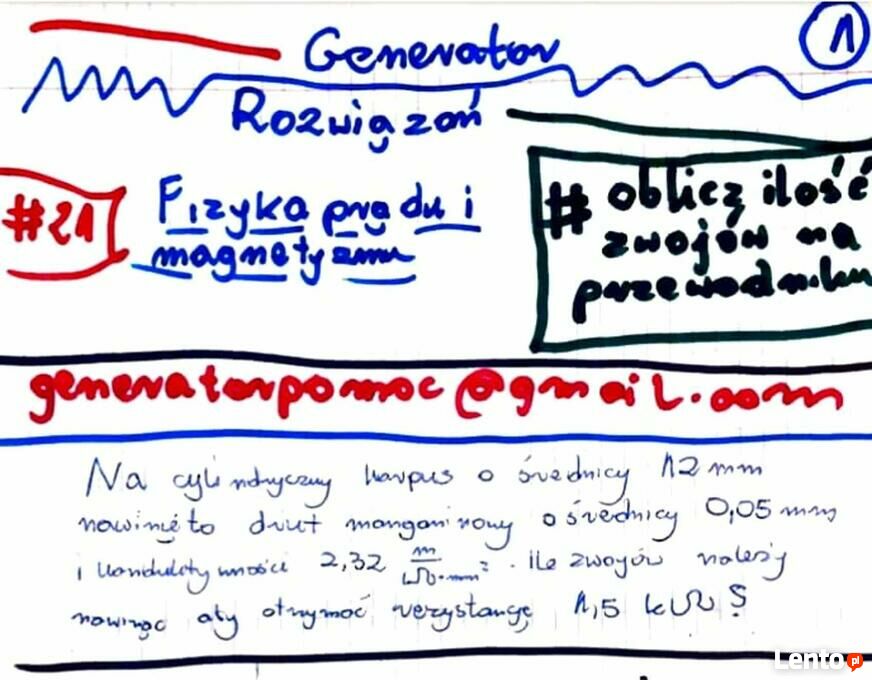 Generator
1
Rozwiązań
#21
Fizyka prądu i
magnetyzmu
# oblicz ilość
zwojów na
przewodniku
generatorpomoc@gmail.com
Na cylindryczny korpus o średnicy 12 mm
nawinięto drut manganinowy o średnicy 0,05 mm
i konduktywności 2,32 m/Ω·mm². Ile zwojów należy
nawinąć aby otrzymać rezystancję 1,5 kΩ?
Lento.pl